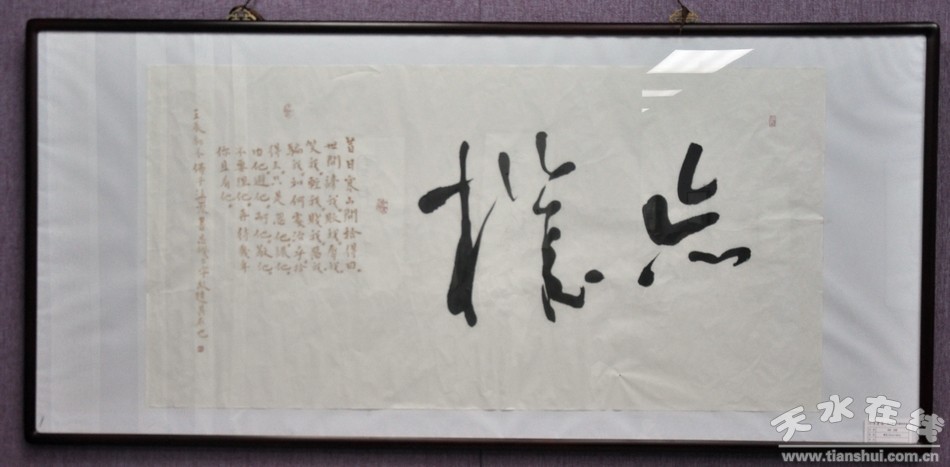 忘機
昔日寒山問拾得曰。
世間謗我欺我辱我
笑我。輕我賤我惡我
騙我。如何處治乎拾
得云。只是忍他讓他
由他。避他。耐他。敬他
不要理他。再待幾年
你且看他。
壬辰初冬佛子
天水在线
www.tianshui.com.cn